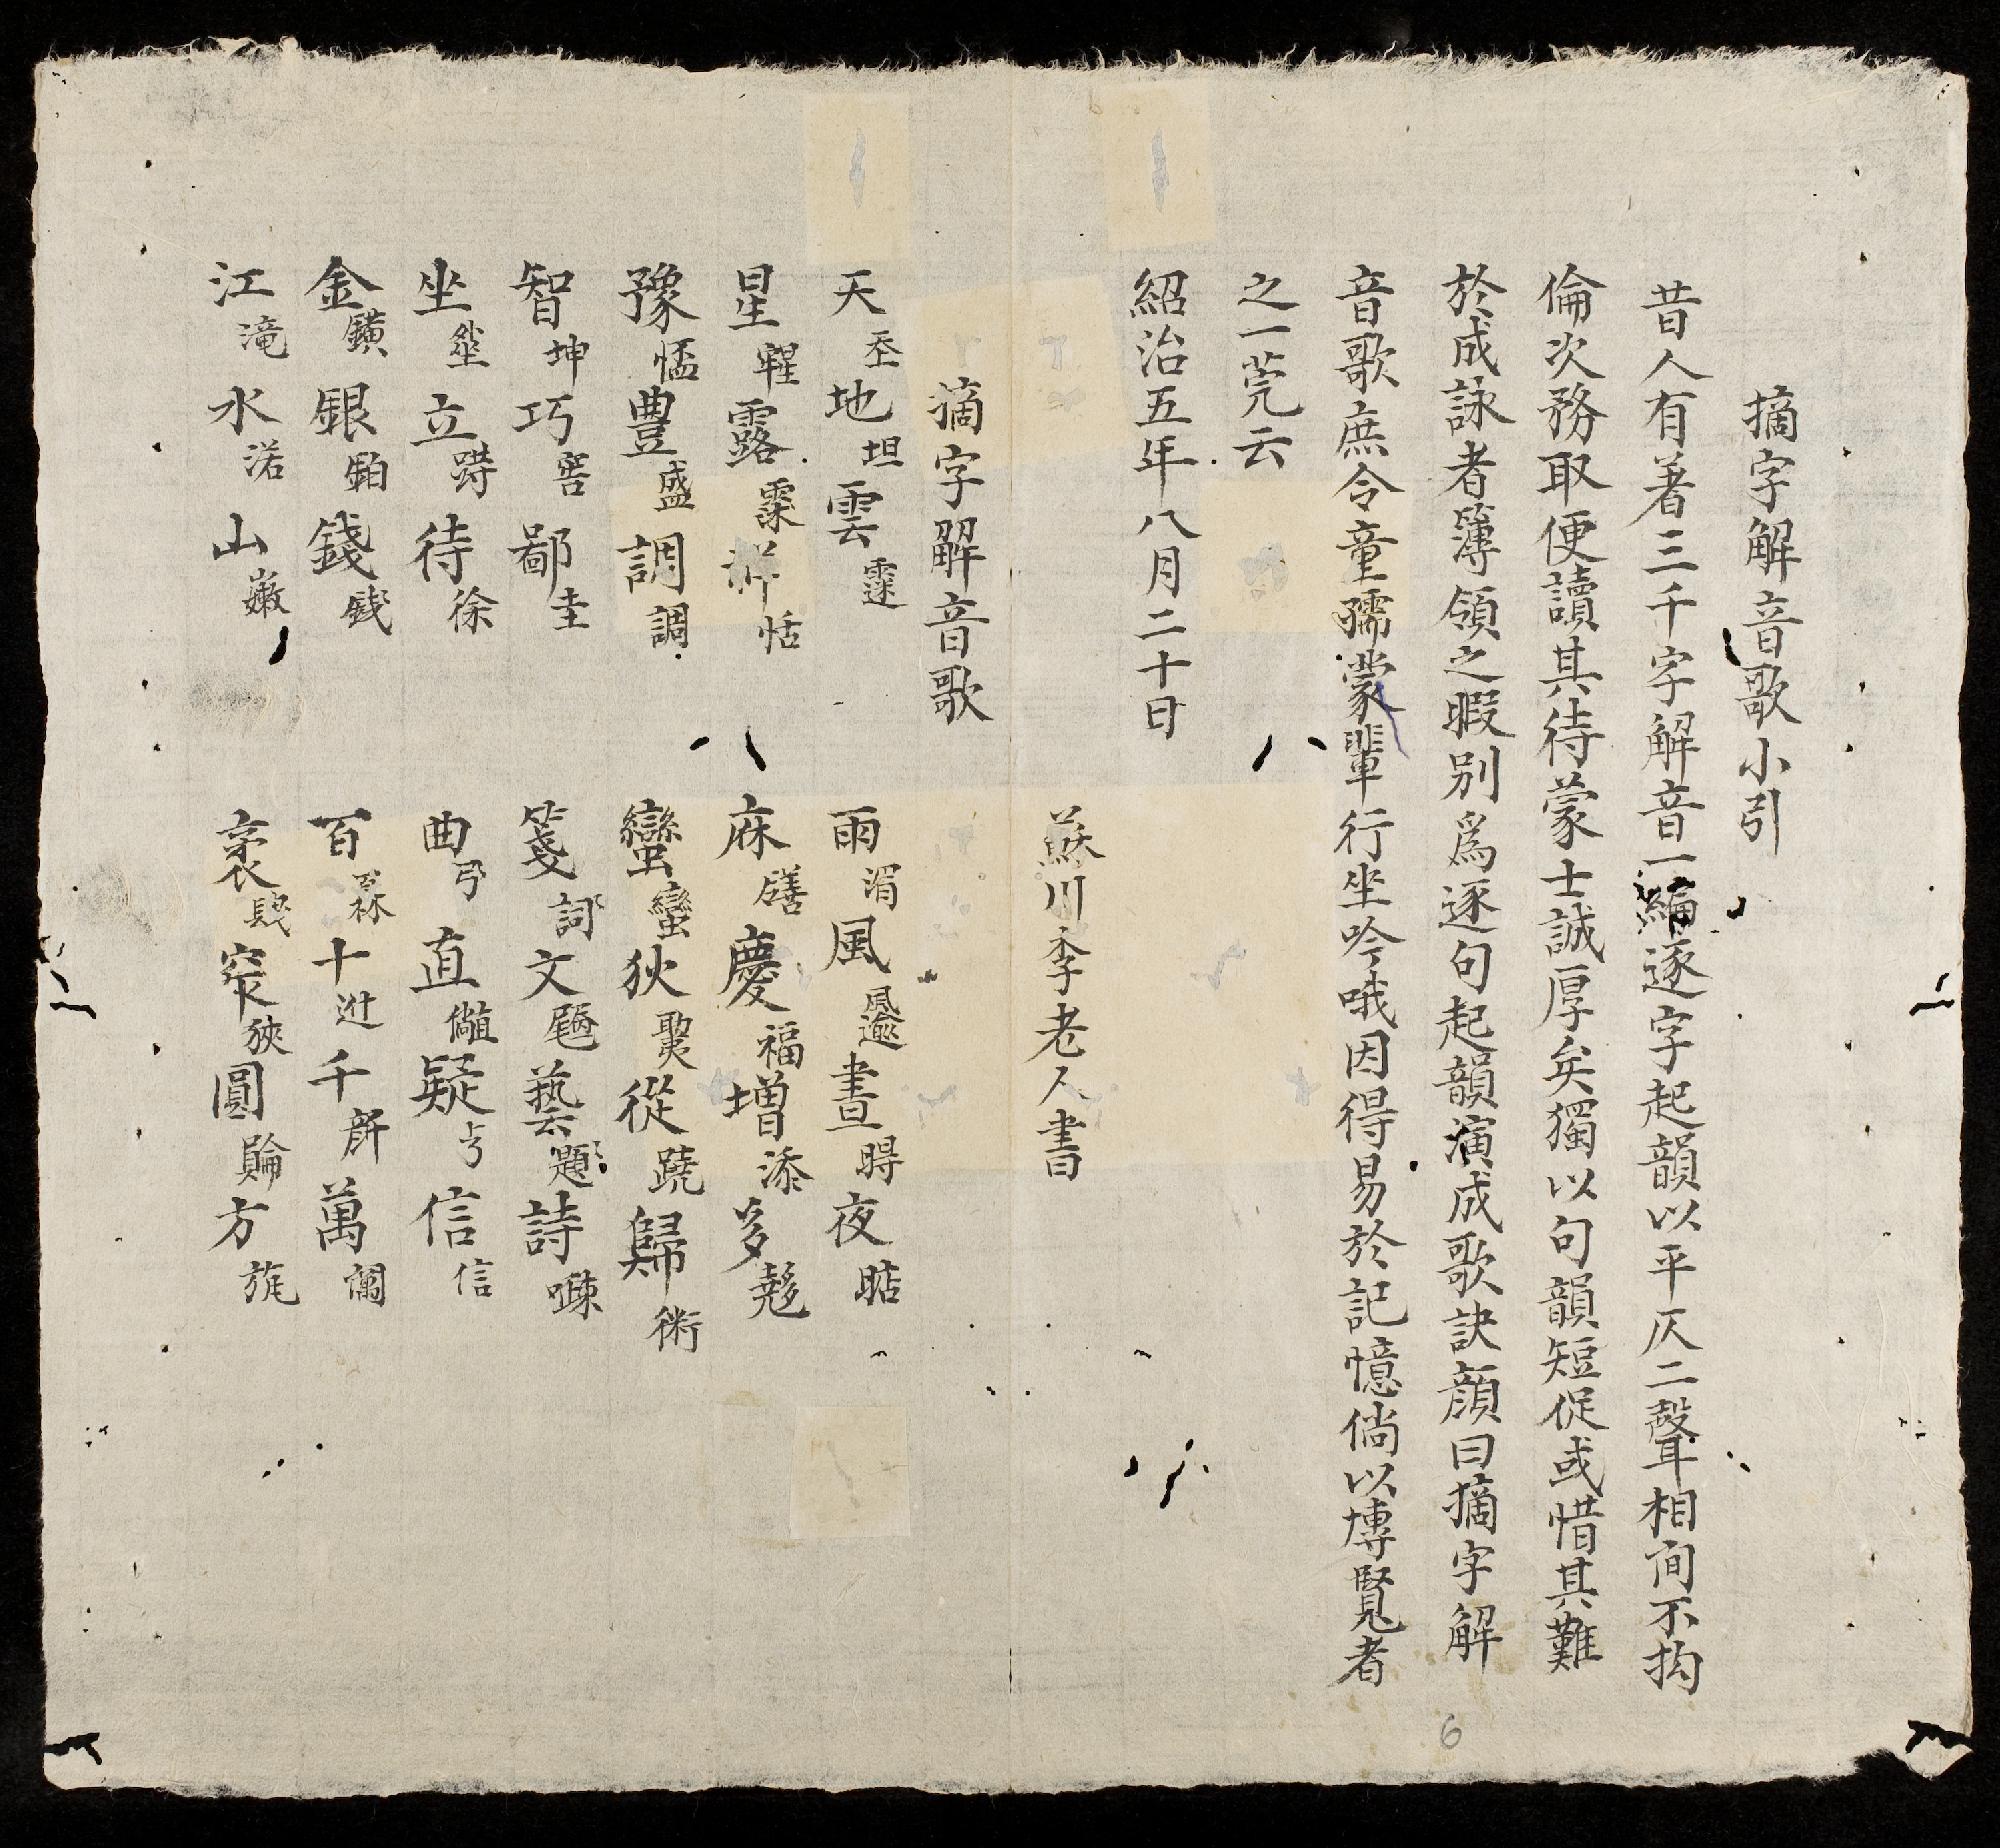 摘字解音歌小引
昔人有著三千字解音一編逐字起韻以平仄二聲相间不拘
倫次務取便讀其待蒙士誠厚矣獨以句韻短促或惜其難
於成詠者簿領之暇別爲逐句起韻演成歌訣顔曰摘字解
音歌庶令童孺蒙輩行坐吟哦因得易於記憶倘以博覧者
之一莞云
紹治五年八月二十日
蘇川李老人書
摘字解音歌
天𡗶地坦雲䨺 雨湄風䬔晝𣇜夜
星露 祥恬 麻慶福增添多
豫豊盛調調 蠻蠻狄從蹺歸術
智坤巧窖鄙圭 箋詞文藝題詩㗂
坐𡎥立待徐 曲弓直疑信信
金鐄銀鉑錢𨱽 百𤾓十𨑮千𠦳萬𨷈
江滝水渃山巌 袤窄狹圓方
6